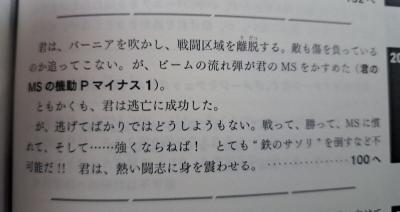 君は、バーニアを吹かし、戦闘区域を離脱する。敵も傷を負っている
のか追ってこない。が、ビームの流れ弾が君のMSをかすめた(君の
MSの機動Pマイナス1)。
ともかくも、君は逃亡に成功した。
が、逃げてばかりではどうしようもない。戦って、勝って、MSに慣
れて、そして……強くならねば! とても“鉄のサソリ”を倒すなど不
可能だ!! 君は、熱い闘志に身を震わせる。………………100へ